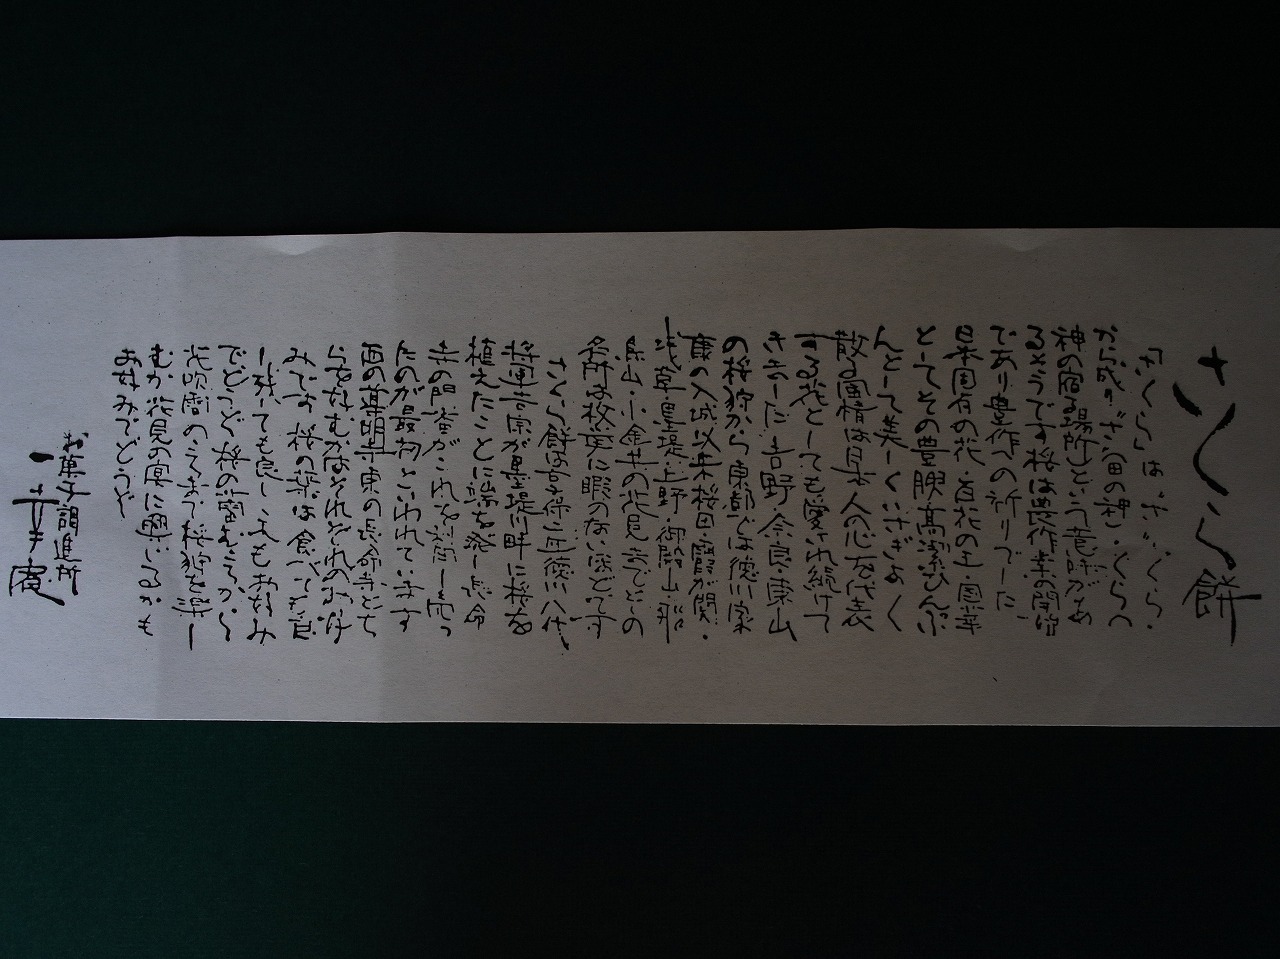 さくら餅
「さくら」は、「さ」「くら」
から成り「さ」(田の神)・「くら」(
神の宿る場所)という意味があ
るそうです 桜は農作業の開始
であり豊作への祈りでした
日本国有の花・百花の王・国華
としてその豊艶高潔ひんぷ
んとして美しくいさぎよく
散る風情は日本人の心を代表
する花としても愛され続けて
きました 吉野・奈良・東山
の桜狩から東都では徳川家
康の入城以来桜田・霞が関・
浅草・墨堤・上野・御殿山・飛
鳥山・小金井の花見までその
名所は枚挙に暇のないほどです
さくら餅は享保二年徳川八代
将軍吉宗が墨堤川畔に桜を
植えたことに端を発し長命
寺の門番がこれを創し売っ
たのが最初といわれています
西の道明寺 東の長命寺どち
らを好むかはそれぞれのお好
みです 桜の葉は食べても良
し残しても良し これもお好み
でどうぞ 桜の蕾ふくらむから
花吹雪のころまで桜狩を楽し
むか 花見の宴に興じるかも
お好みでどうぞ
お菓子調進所
一幸庵